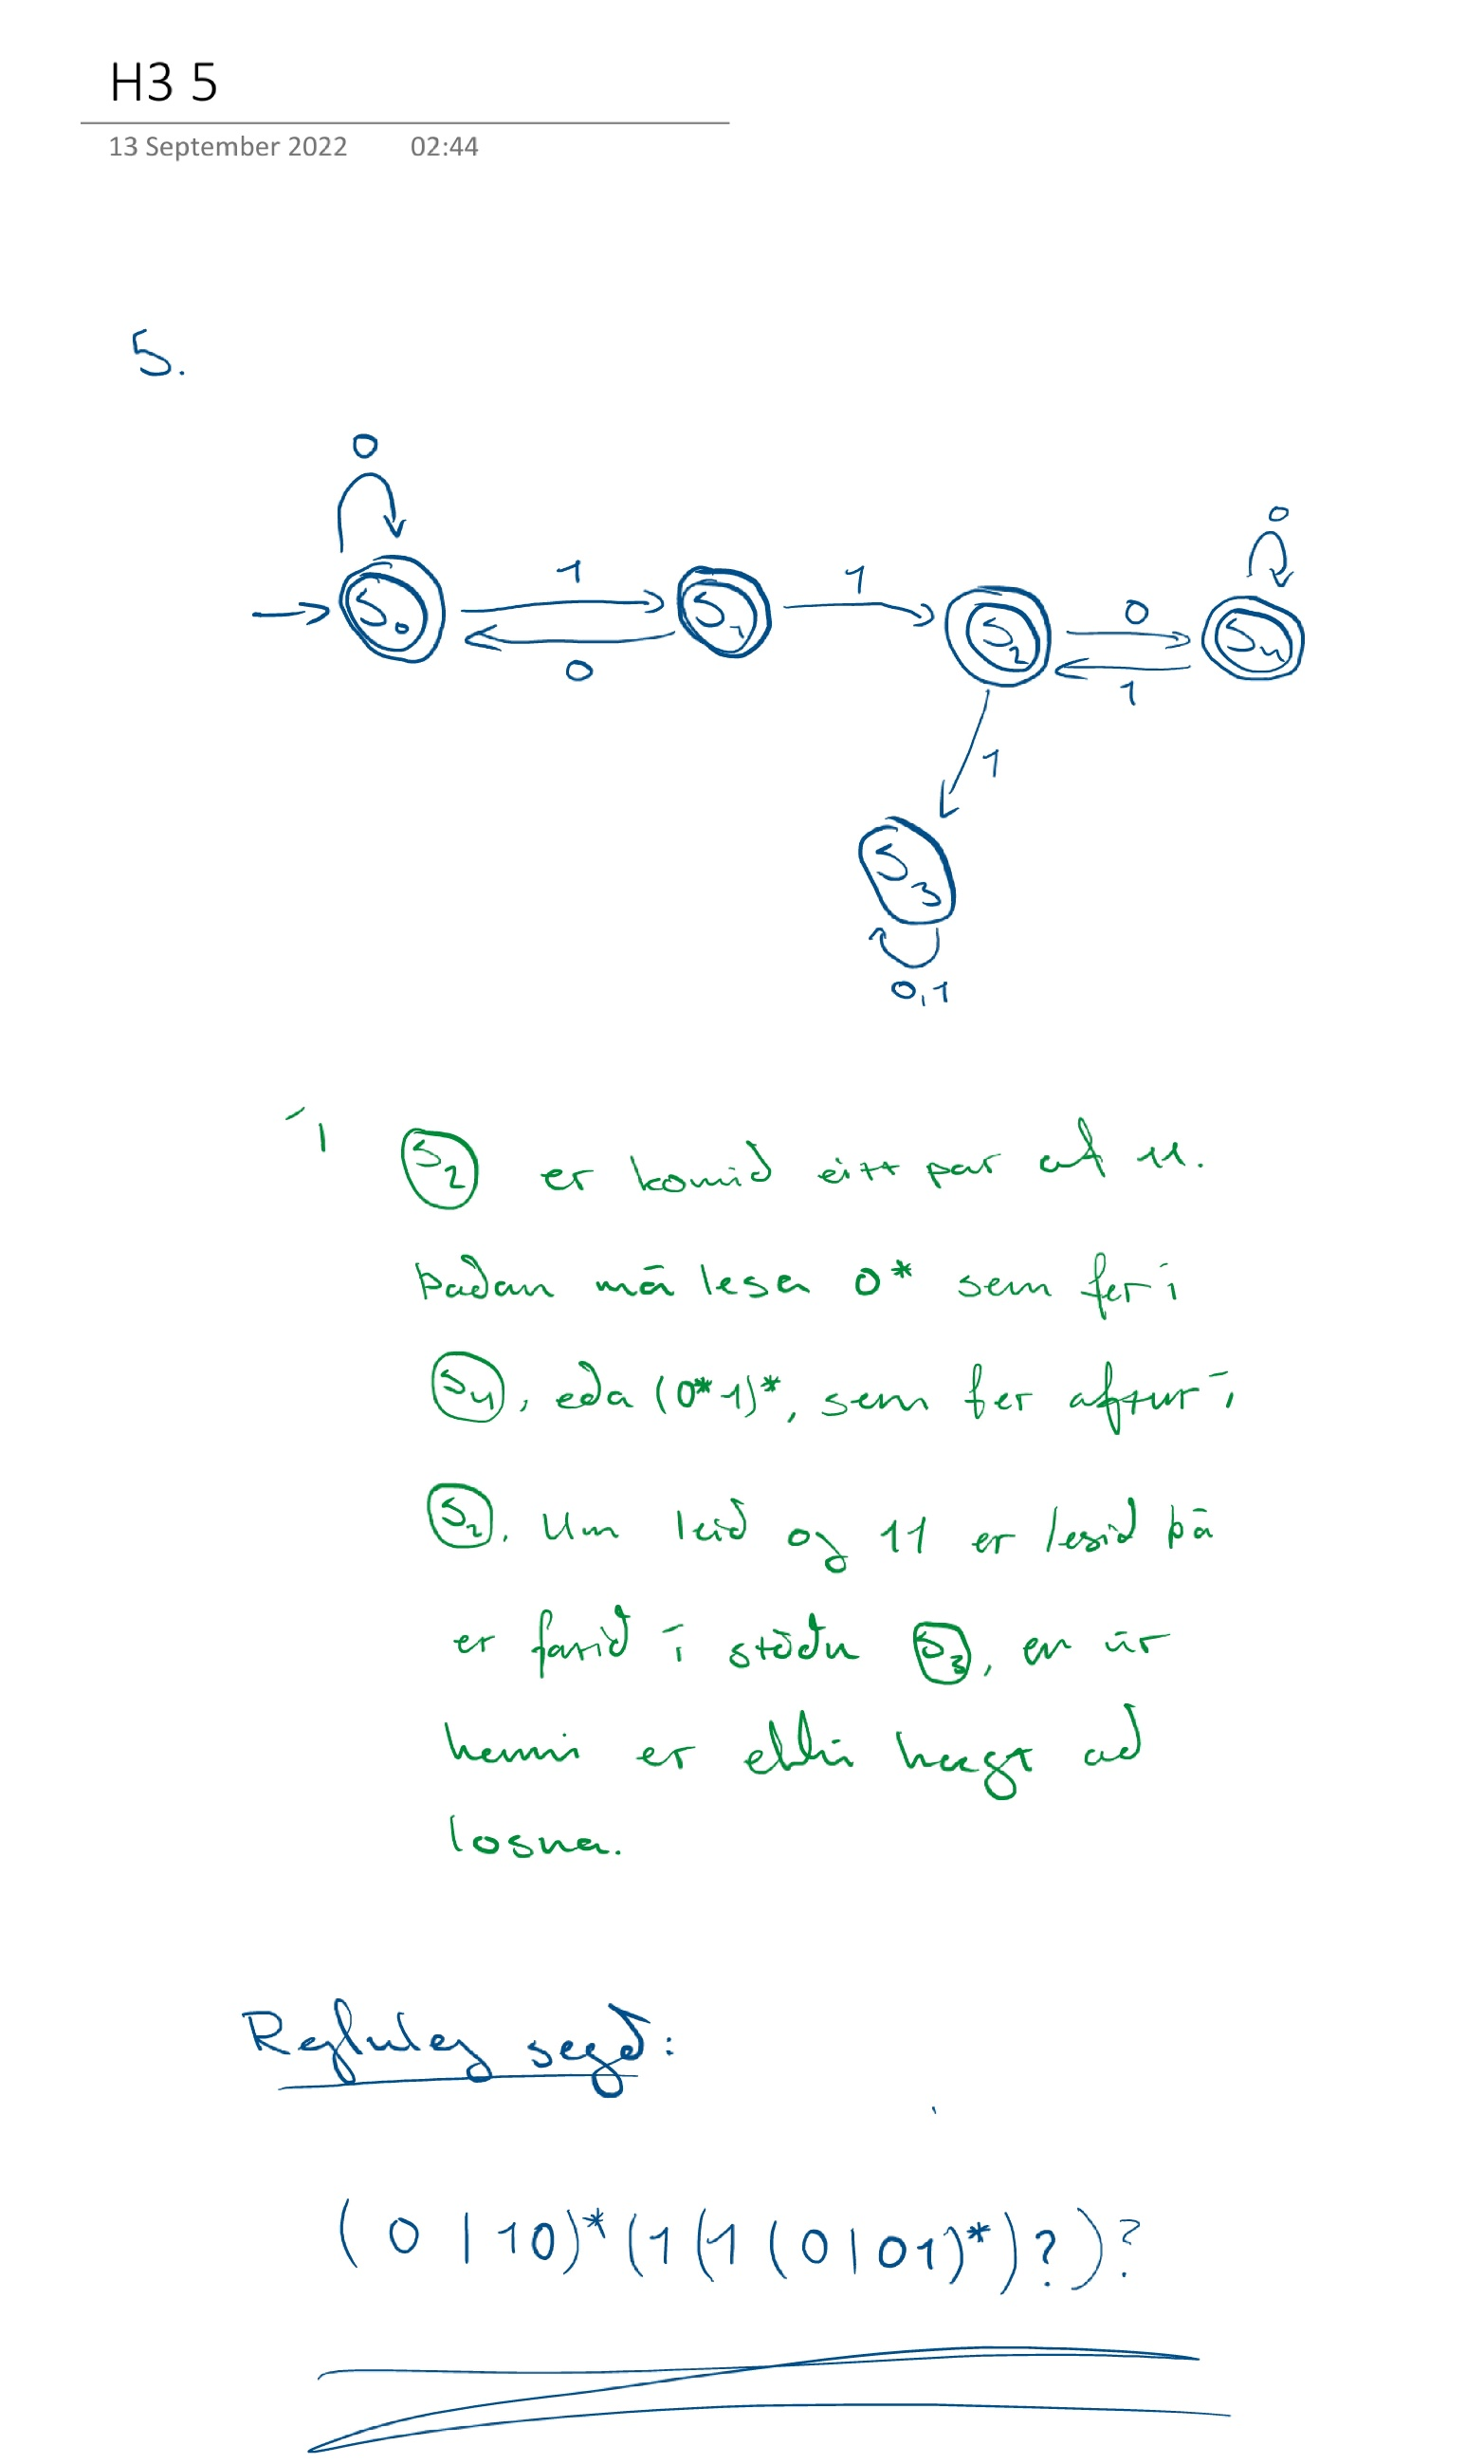 H3 5
13 September 2022 02:44
5.
0
0
1
1
S0
S1
S2
0
S4
0
1
1
S3
0,1
Í S2 er komið eitt par af 11.
Þaðan má lesa 0* sem fer í
S4, eða (0*1)*, sem fer aftur í
S2. Um leið og 11 er lesið þá
er farið í stöðu S3, en úr
henni er ekki hægt að
losna.
Regluleg segð:
(0|10)*(1(1(0|01)*)?)?